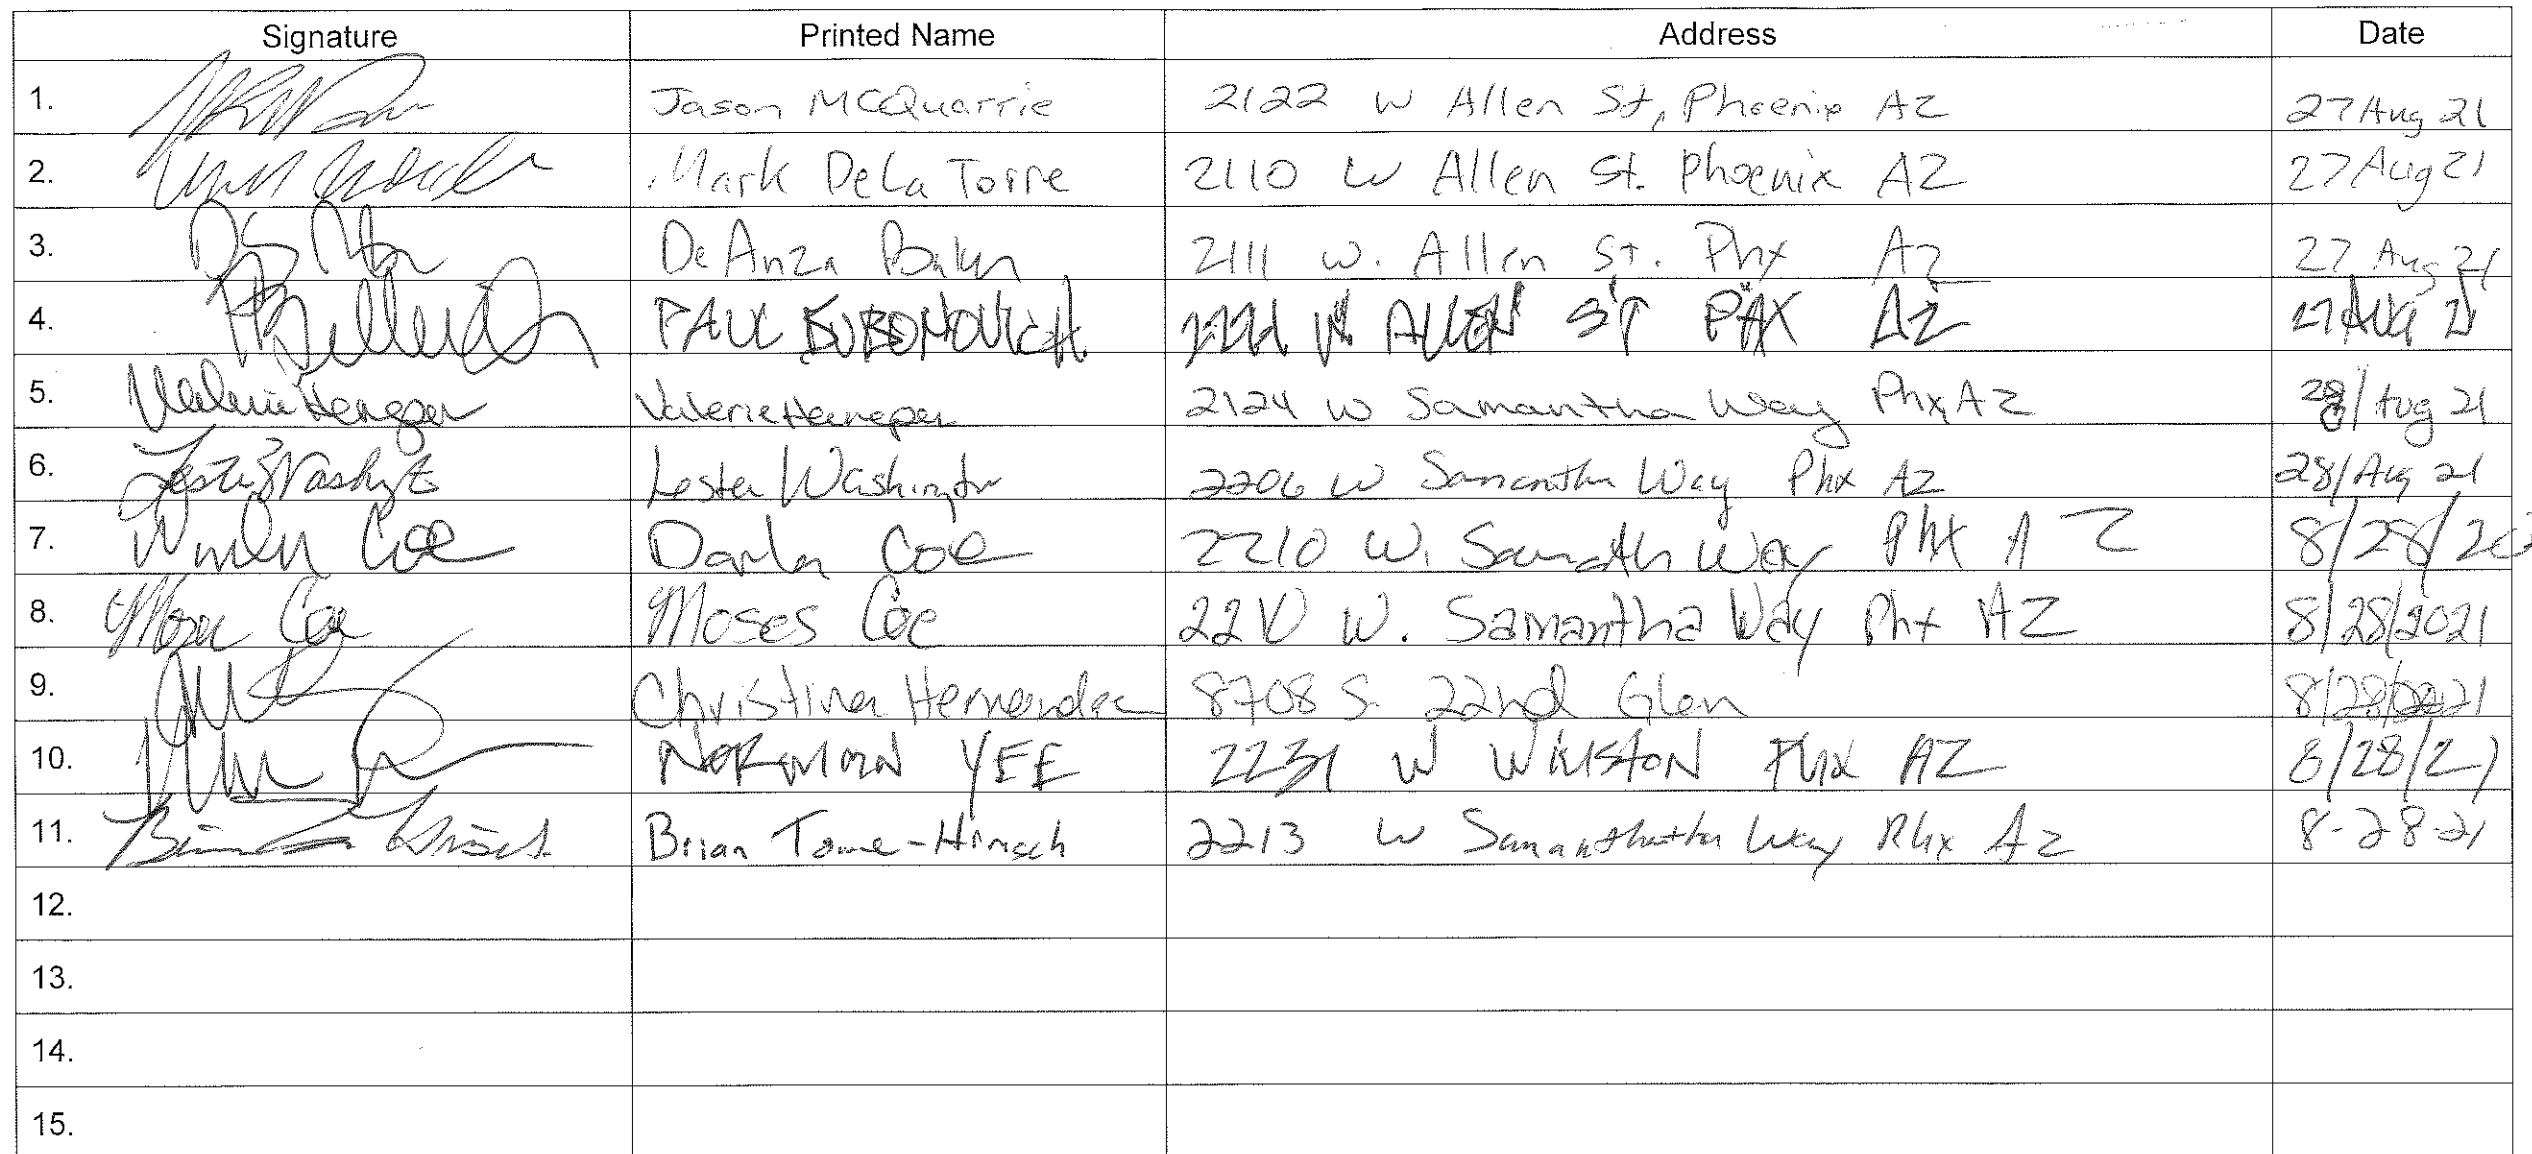 Signature Printed Name Address Date
1. Jason McQuarrie 2122 W Allen St, Phoenix AZ 27 Aug 21
2. Mark DeLa Torre 2110 W Allen St. Phoenix AZ 27 Aug 21
3. DeAnza 2111 W. Allen St. Phx AZ 27 Aug 21
4. PAUL W ALLEN ST PHX AZ 27 AUG 21
5. Valerie 2124 W Samantha Way Phx AZ 28/Aug 21
6. Lester Washington 2206 W Samantha Way Phx AZ 28/Aug 21
7. Darla Coe 2210 W. Way PHX AZ 8/28/
8. Moses Coe 2210 W. Samantha Way Phx AZ 8/28/2021
9. Christina Hernandez 8708 S. 22nd Glen 8/28/2021
10. NORMAN YEE 2231 W WINSTON PHX AZ 8/28/21
11. Brian 2213 W Way Phx AZ 8-28-21
12.
13.
14.
15.